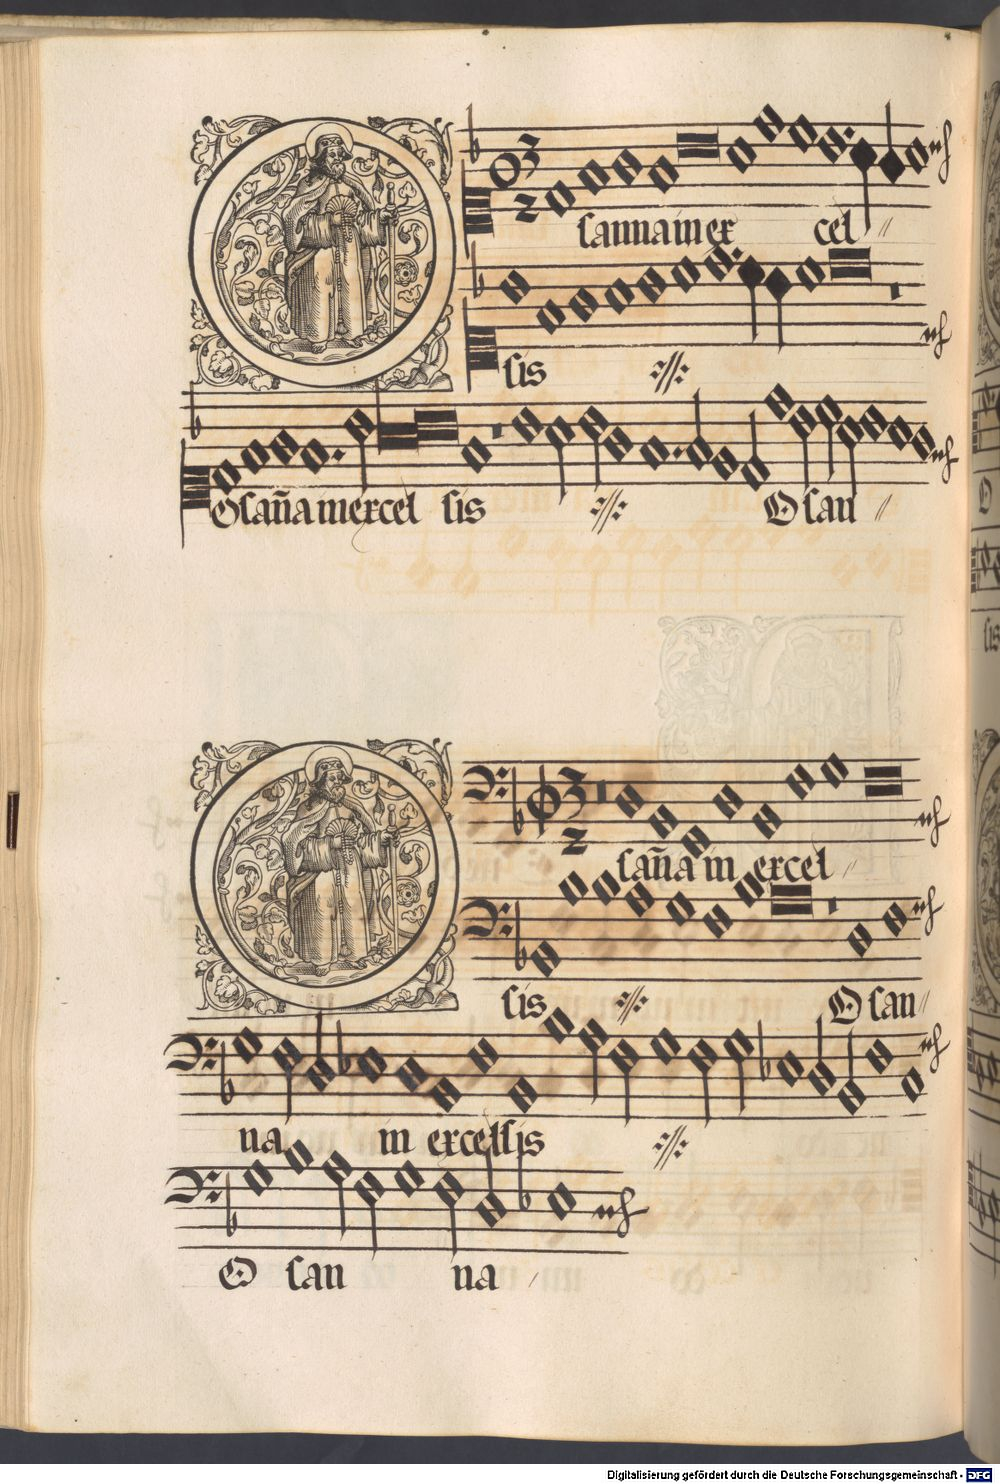 O sanna in ex cel
sis
Osan̄a in excel sis O san
O san̄a in excel
sis O san
na in excelsis
O san na
Digitalisierung gefördert durch die Deutsche Forschungsgemeinschaft - DFG